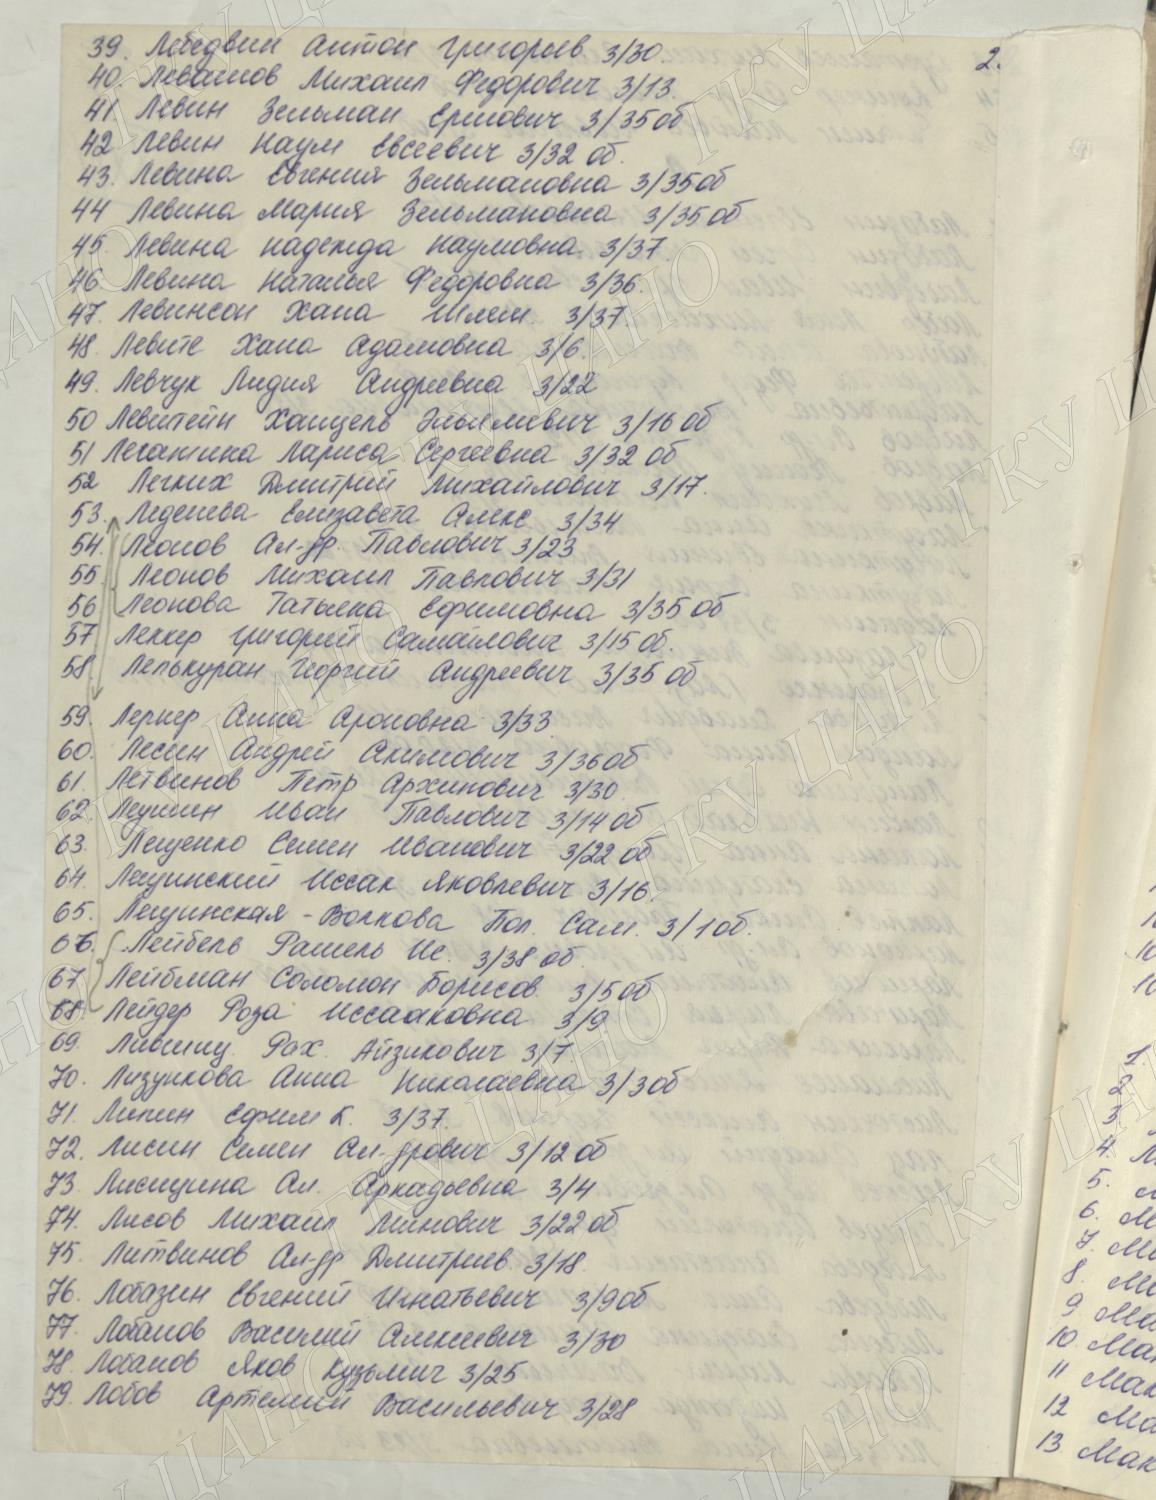 2.
39. Лебедвин Антон Григорьев. 3/30.
40. Левашов Михаил Федорович 3/13.
41 Левин Зельман Ериович 3/35 об
42 Левин Наум Евсеевич 3/32 об.
43. Левина Евгения Зельмановна 3/35 об
44 Левина Мария Зельмановна 3/35 об
45. Левина Надежда Наумовна. 3/37.
46. Левина Наталья Федоровна 3/36.
47. Левинсон Хана Шлем. 3/37.
48. Левите Хана Адамовна 3/6.
49. Левчук Лидия Андреевна 3/22
50 Левштейн Ханцель 3/16 об
51 Легашина Лариса Сергеевна 3/32 об
52 Легких Дмитрий Михайлович 3/17.
53. Леденева Елизавета Алекс. 3/34
54. Леонов Ал-др. Павлович 3/23
55. Леонов Михаил Павлович 3/31
56 Леонова Татьяна Ефимовна 3/35 об
57 Леккер Григорий Самайлович 3/15 об.
58. Лепькуран Георгий Андреевич 3/35 об
59. Лернер Анна Ароновна 3/33.
60. Лесин Андрей Акимович 3/36 об
61. Летвинов Петр Архипович 3/30
62. Леушин Иван Павлович 3/14 об
63. Лещенко Семен Иванович 3/22 об
64. Лещинский Иссак Яковлевич 3/16.
65. Лещинская-Волкова Пол. Сам. 3/1 об.
66. Лейбель Рашель Ис. 3/38 об.
67. Лейбман Соломон Борисов. 3/5 об
68. Лейдер Роза Иссааковна 3/9
69. Лившиц. Рах. Айзикович 3/7.
70. Лизункова Анна Николаевна 3/3 об
71. Липин Ефим К. 3/37.
72. Лисин Семен Ал-дрович 3/12 об
73 Лисицина Ал. Аркадьевна 3/4
74. Лисов Михаил Минович 3/22 об
75. Литвинов Ал-др Дмитриев. 3/18.
76. Лобазин Евгений Игнатьевич 3/9 об
77. Лобанов Василий Алексеевич 3/30
78. Лобанов Яков Кузьмич 3/25
79. Лобов Артемий Васильевич 3/28
1.
2
3
4.
5.
6.
7.
8.
9 Ма
10. Мак
11 Мак
12 Ма
13. Мак
ГКУ ЦАНО